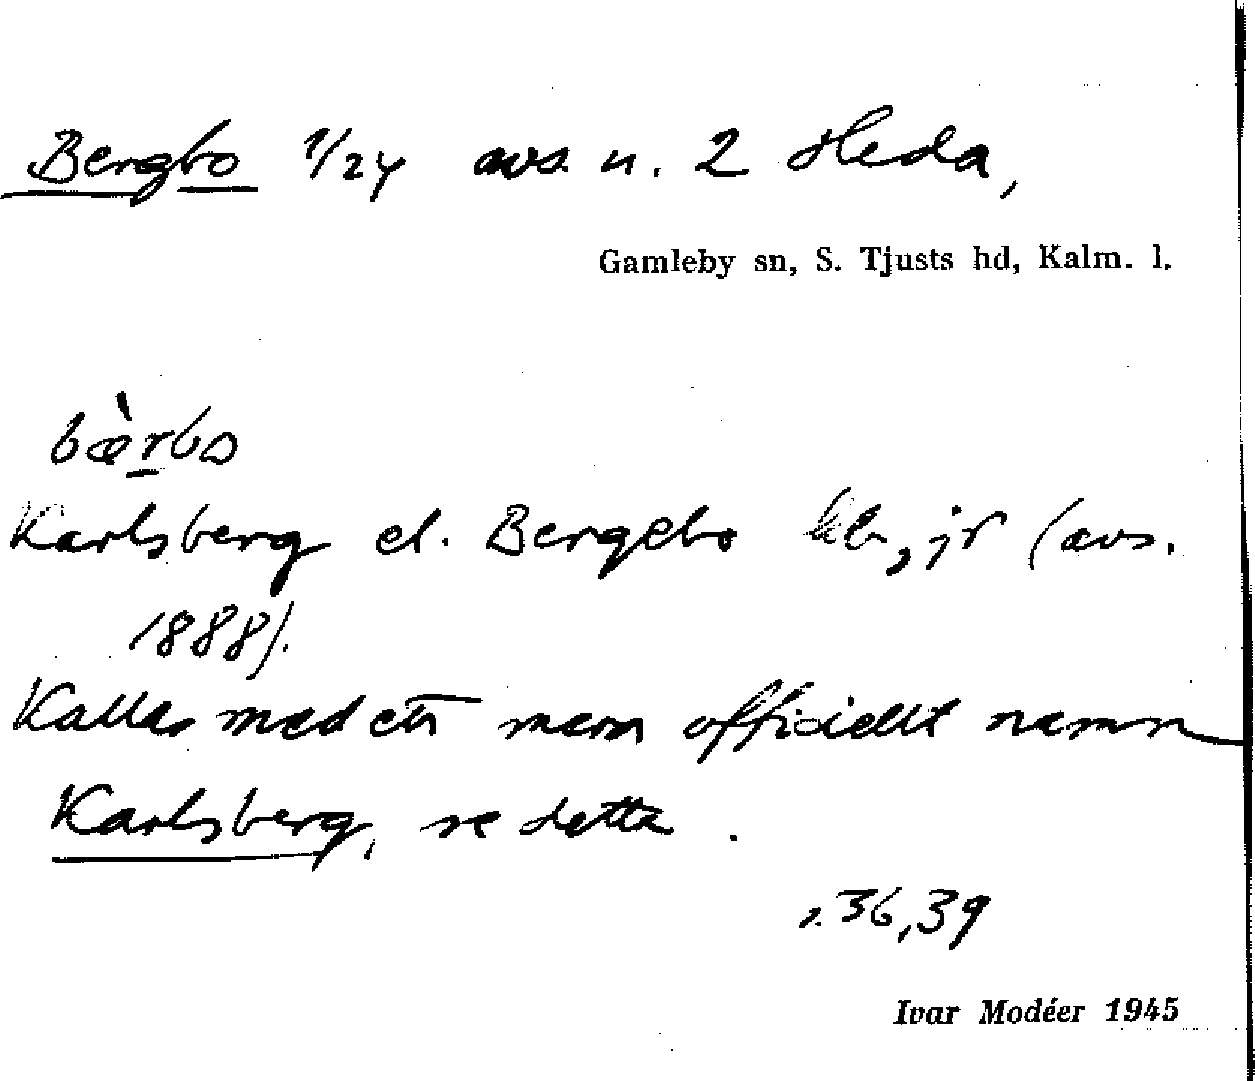 Bergbo 1/24 avs. u. 2 Heda,
Gamleby sn, S. Tjusts hd, Kalm. l.
bæ̀rbo
Karlsberg el. Bergebo lht, jr (avs.
1888).
Kallas med ett mera officiellt namn
Karlsberg, se detta.
s. 36, 39
Ivar Modéer 1945